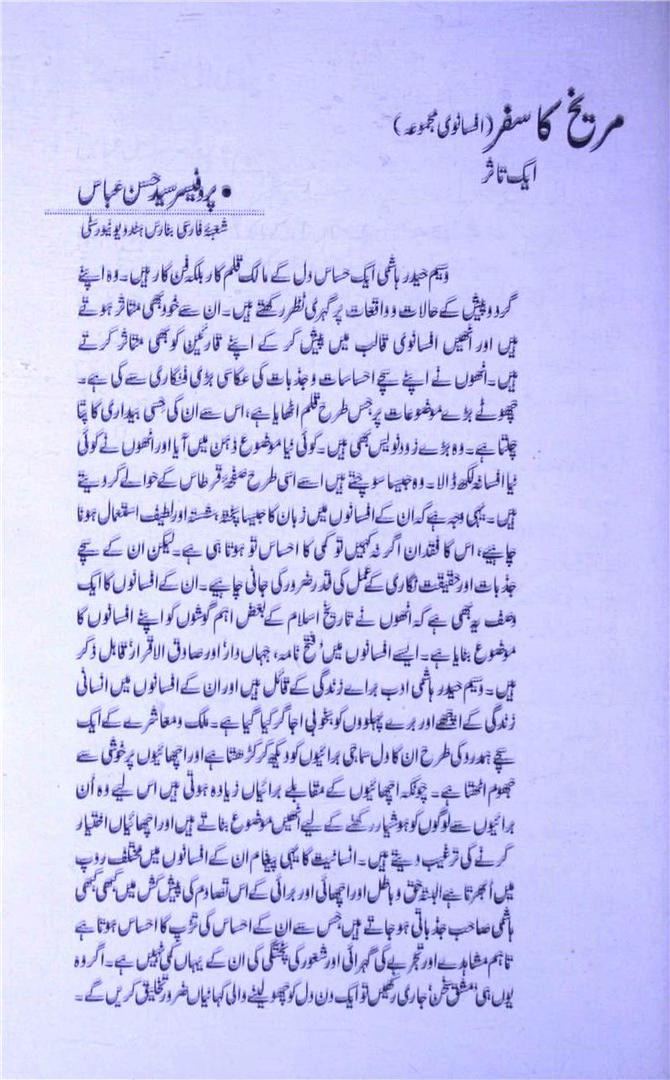 مریخ کا سفر (افسانوی مجموعہ)
ایک تاثر
• پروفیسر سید حسن عباس
شعبۂ فارسی بنارس ہندو یونیورسٹی
وسیم حیدر ہاشمی ایک حساس دل کے مالک قلم کار بلکہ فن کار ہیں۔ وہ اپنے
گرد و پیش کے حالات و واقعات پر گہری نظر رکھتے ہیں۔ ان سے خود بھی متاثر ہوتے
ہیں اور انھیں افسانوی قالب میں پیش کر کے اپنے قارئین کو بھی متاثر کرتے
ہیں۔ انھوں نے اپنے سچے احساسات و جذبات کی عکاسی بڑی فنکاری سے کی ہے۔
چھوٹے بڑے موضوعات پر جس طرح قلم اٹھایا ہے، اس سے ان کی حسی بیداری کا پتا
چلتا ہے۔ وہ بڑے زود نویس بھی ہیں۔ کوئی نیا موضوع ذہن میں آیا اور انھوں نے کوئی
نیا افسانہ لکھ ڈالا۔ وہ جیسا سوچتے ہیں اسے اسی طرح صفحۂ قرطاس کے حوالے کر دیتے
ہیں۔ یہی وجہ ہے کہ ان کے افسانوں میں زبان کا جیسا پختہ، شستہ اور لطیف استعمال ہونا
چاہیے، اس کا فقدان اگر نہ کہیں تو کمی کا احساس تو ہوتا ہی ہے۔ لیکن ان کے سچے
جذبات اور حقیقت نگاری کے عمل کی قدر ضرور کی جانی چاہیے۔ ان کے افسانوں کا ایک
وصف یہ بھی ہے کہ انھوں نے تاریخ اسلام کے بعض اہم گوشوں کو اپنے افسانوں کا
موضوع بنایا ہے۔ ایسے افسانوں میں 'فتح نامہ، جہاں دار' اور صادق الاقرار' قابل ذکر
ہیں۔ وسیم حیدر ہاشمی ادب برائے زندگی کے قائل ہیں اور ان کے افسانوں میں انسانی
زندگی کے اچھے اور برے پہلوؤں کو بخوبی اجاگر کیا گیا ہے۔ ملک و معاشرے کے ایک
سچے ہمدرد کی طرح ان کا دل سماجی برائیوں کو دیکھ کر کڑھتا ہے اور اچھائیوں پر خوشی سے
جھوم اٹھتا ہے۔ چونکہ اچھائیوں کے مقابلے برائیاں زیادہ ہوتی ہیں اس لیے وہ اُن
برائیوں سے لوگوں کو ہوشیار رکھنے کے لیے انھیں موضوع بناتے ہیں اور اچھائیاں اختیار
کرنے کی ترغیب دیتے ہیں۔ انسانیت کا یہی پیغام ان کے افسانوں میں مختلف روپ
میں اُبھرتا ہے البتہ حق و باطل اور اچھائی اور برائی کے اس تصادم کی پیش کش میں کبھی کبھی
ہاشمی صاحب جذباتی ہو جاتے ہیں، جس سے ان کے احساس کی تڑپ کا احساس ہوتا ہے
تاہم مشاہدے اور تجربے کی گہرائی اور شعور کی پختگی کی ان کے یہاں کمی نہیں ہے۔ اگر وہ
یوں ہی 'مشق سخن' جاری رکھیں تو ایک دن دل کو چھو لینے والی کہانیاں ضرور تخلیق کریں گے۔